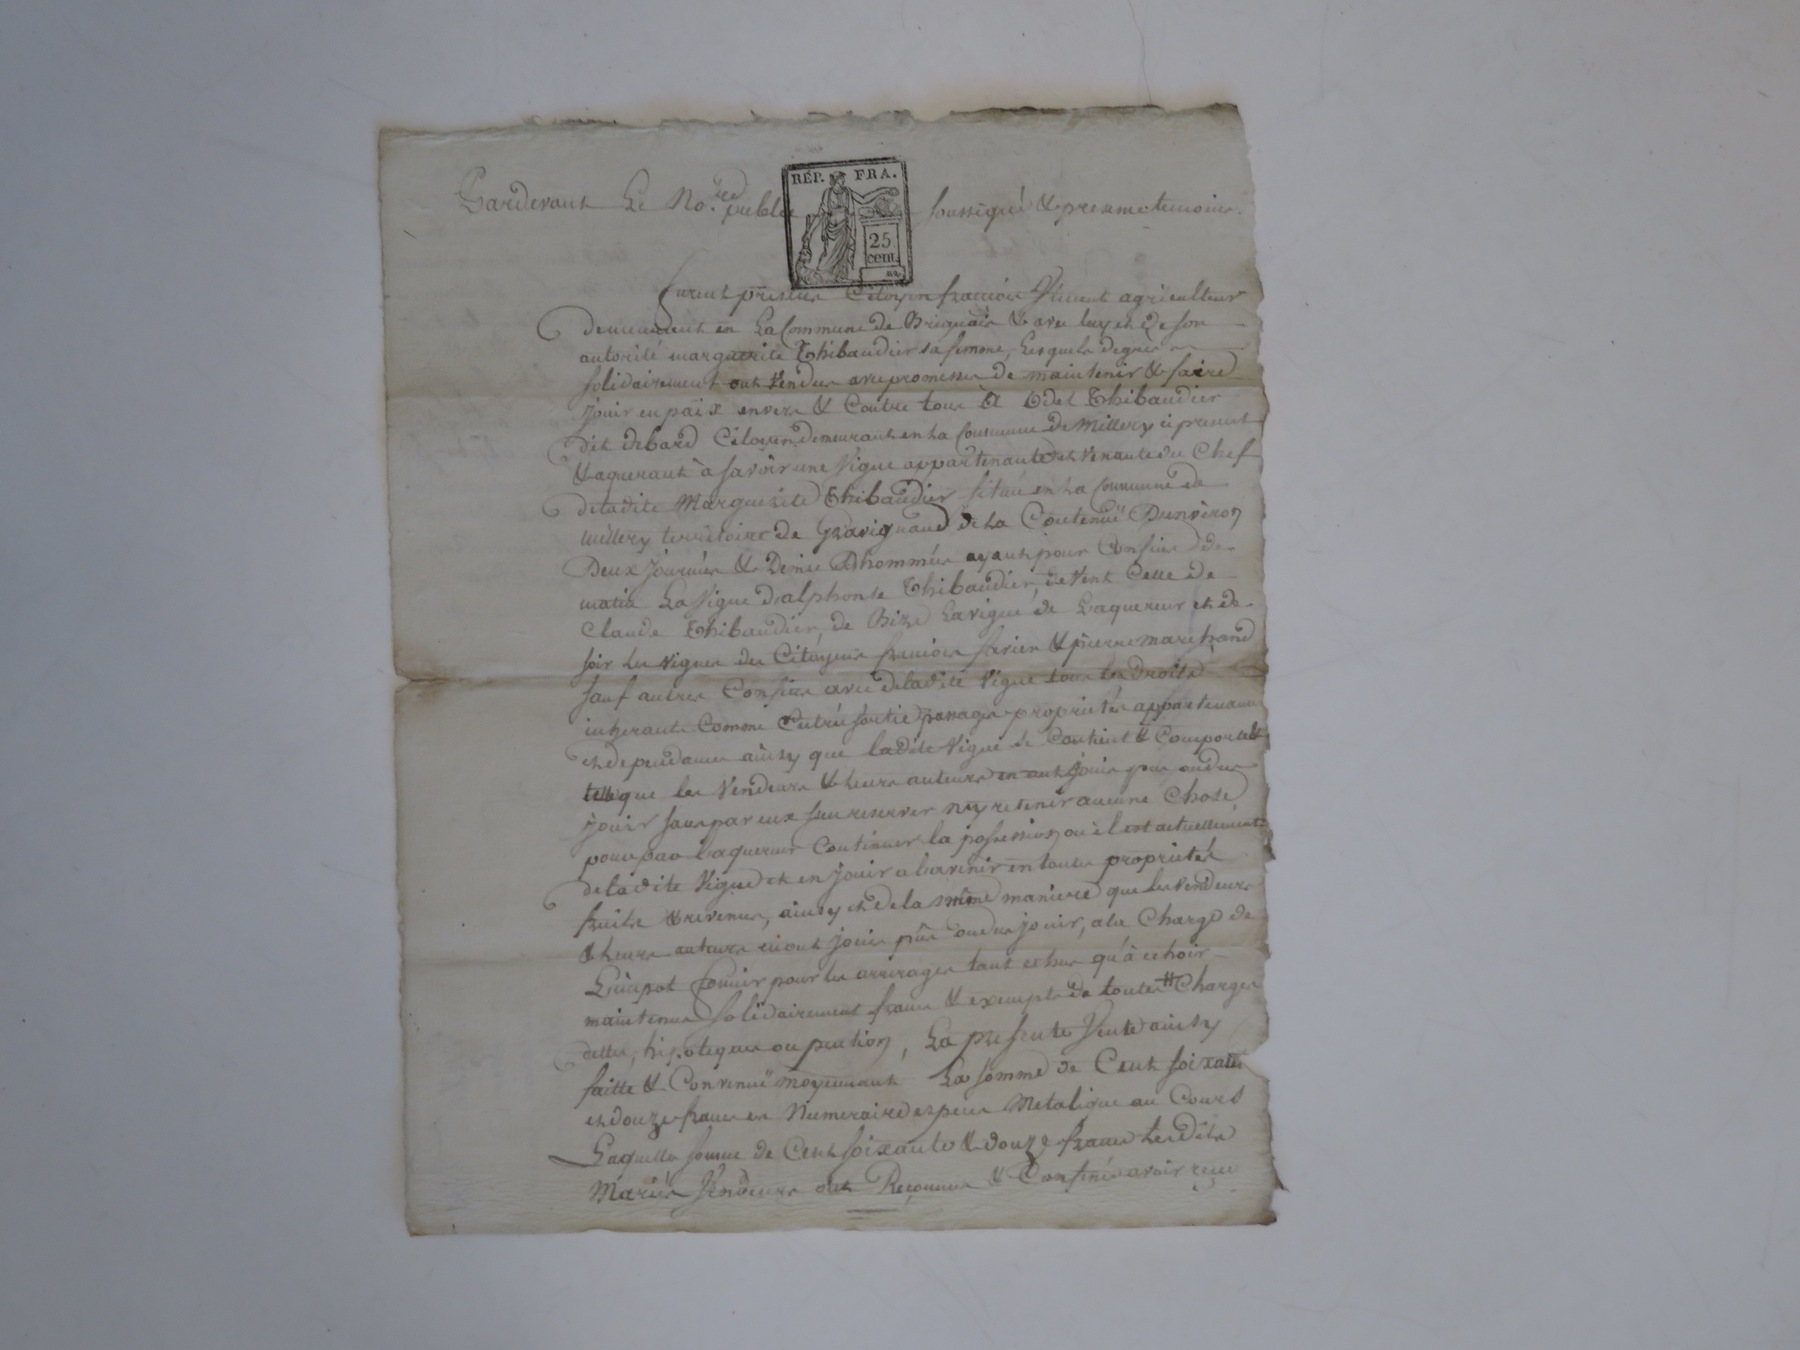 RÉP. FRA.
25
cent.
Pardevant Le No.re public soussigné & presence temoins.
furent présens Citoyen françois Vincent agriculteur
demeurant en La Commune de Brignais & avec luy et de son
autorité marguerite Thibaudier sa femme, Lesquels de gré
solidairement ont Vendus avec promesse de maintenir & faire
jouir en paix envers & Contre tous à Odet Thibaudier
dit Citoyen demeurant en La Commune de Millery ci present
& aquerant à savoir une Vigne appartenante et Venante du Chef
de ladite Marguerite Thibaudier située en La Commune de
millery territoire de Gravignand de La Contenuë Denviron
Deux journées & Demie Dhommés ayant pour Confins de
matin La Vigne dalphonse Thibaudier, de Vent Celle de
Claude Thibaudier, de Bize La vigne de Laquereur et de
soir les vignes des Citoyens françois & pierre marchand
sauf autres Confins avec de ladite Vigne tous les Droits
inherants Comme Entrée sortie passages proprietés appartenances
et dependances ainsy que ladite Vigne se Contient & Comporte
telle que les Vendeurs & leurs auteurs en ont jouis pus ou dus
jouir sans par eux sen reserver ny retenir aucune Chose,
pour par laquereur Continuer la possession ou il est actuellement
de ladite Vigne et en jouir a lavenir en toutes proprietés
fruits & revenus, ainsy et de la même maniere que les Vendeurs
& leurs auteurs en ont jouis pûs ou dus jouir, a la Charge de
Limpot foncier pour les arrerages tant echus qu'à echoir
maintenue solidairement franc & exempte de toutes # Charges
dettes, hipoteques ou pention, La presente Vente ainsy
faitte & Convenuë moyennant La somme de Cent soixante
et douze francs en Numeraire espece Metalique au Cours
Laquelle somme de Cent soixante & douze francs Lesdits
Mariés Vendeurs ont Reconnus & Confessé avoir reçu